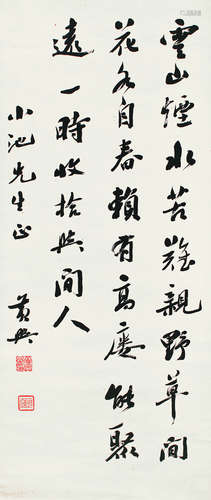 雲山煙水苦難親野草閒
花各自春賴有高廔能聚
遠一時收拾與閒人
小池先生正
黃興